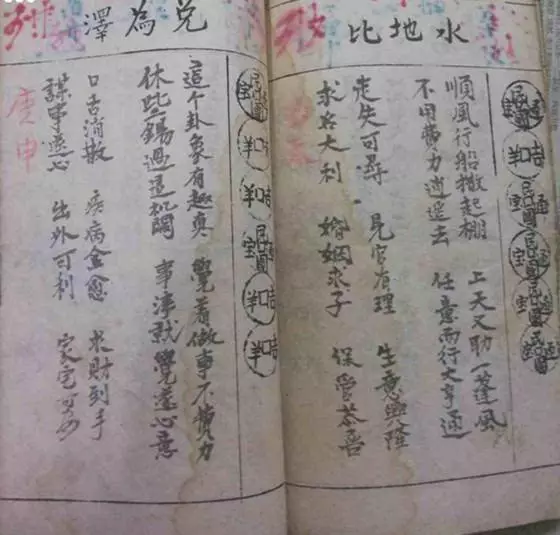 水地比
順風行船撒起棚 上天又助一蓬風
不用費力逍遥去 任意而行大亨通
走失可尋 見官有理 生意興隆
求名大利 婚姻求子 保管恭喜
兌為澤
這个卦象有趣真 覺着做事不費力
休些錯過這机関 事就覺遂心意
口舌消散 疾病全愈 求財到手
謀事遂心 出外可利 家宅可
庚申